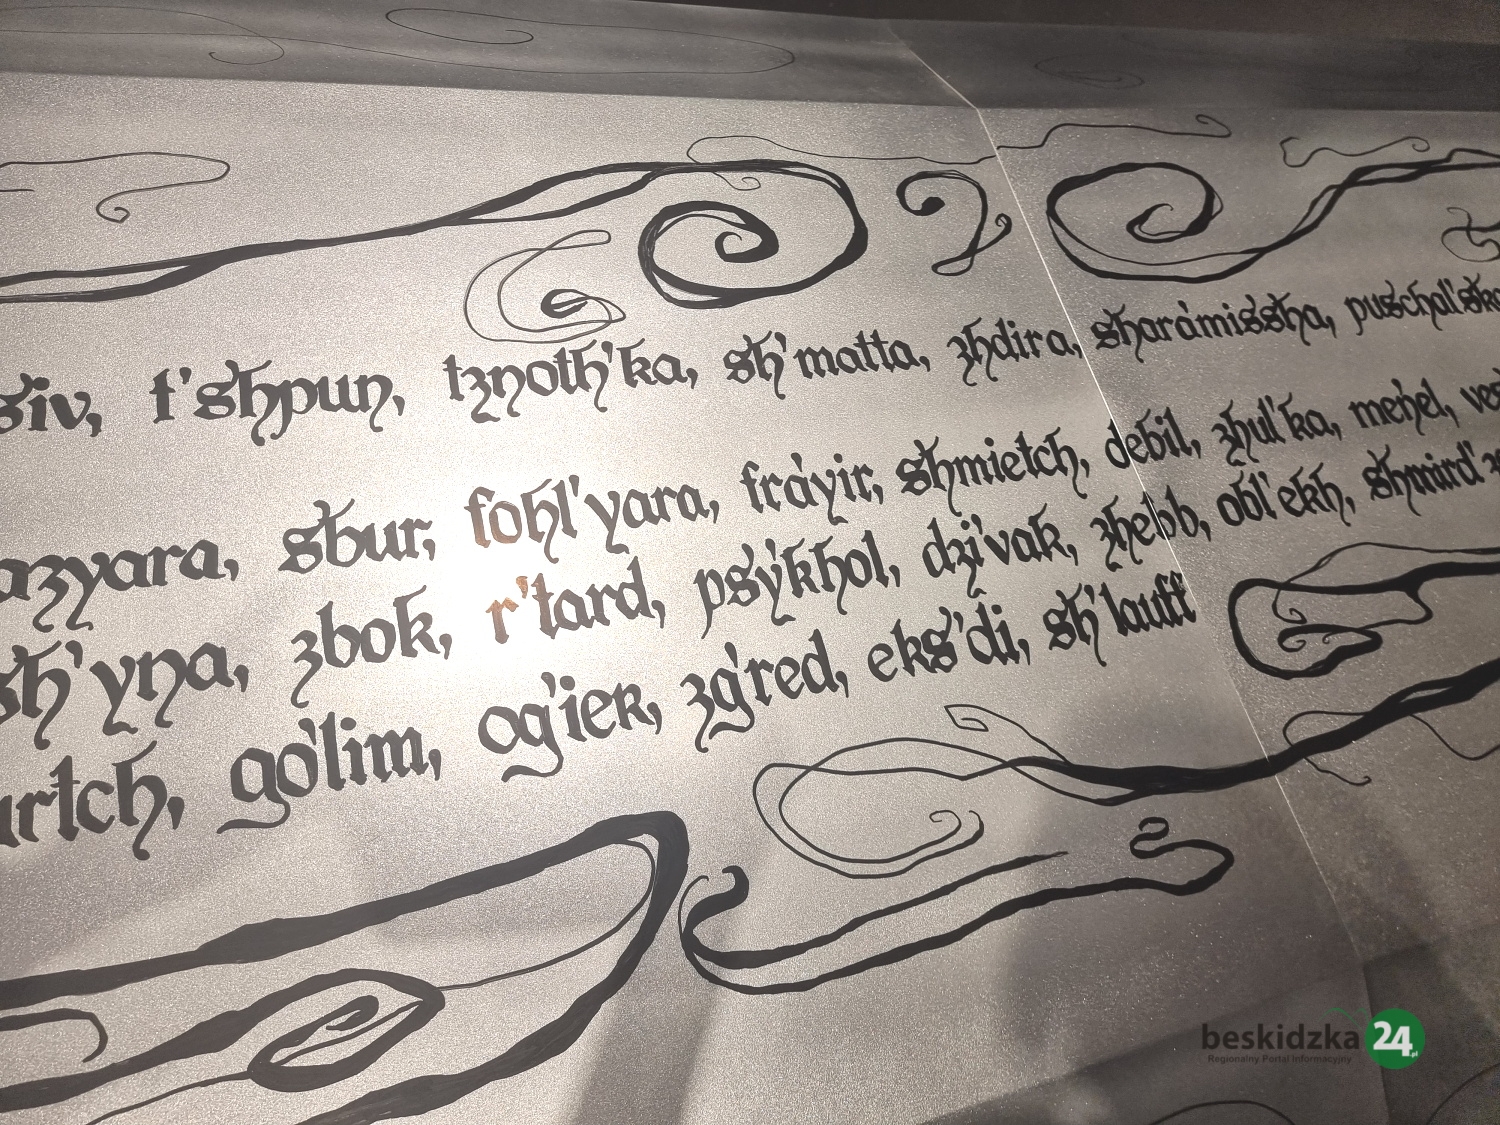 t'shpun, tznoth'ka, sh'matta, zhdira, sharámissha,
sbur, fohl'yara, fráyir, shmietch, debil, zhul'ka, mehel,
sh'yna, zbok, r'tard, psýkhol, dzi'vak, zhebb, obl'ekh,
go'lim, og'ier, zg'red, eks'di, sh'lauff
beskidzka24.pl
Regionalny Portal Informacyjny